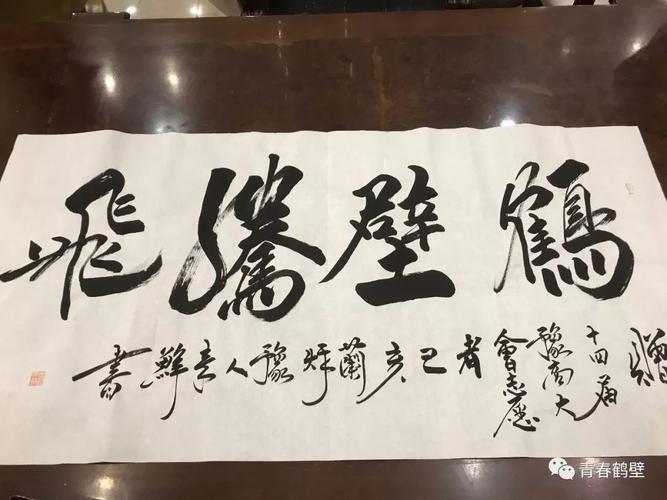 鶴壁騰飛
贈
十四届
豫商大
會志愿
者己亥蘭秋豫人鮮書
青春鹤壁